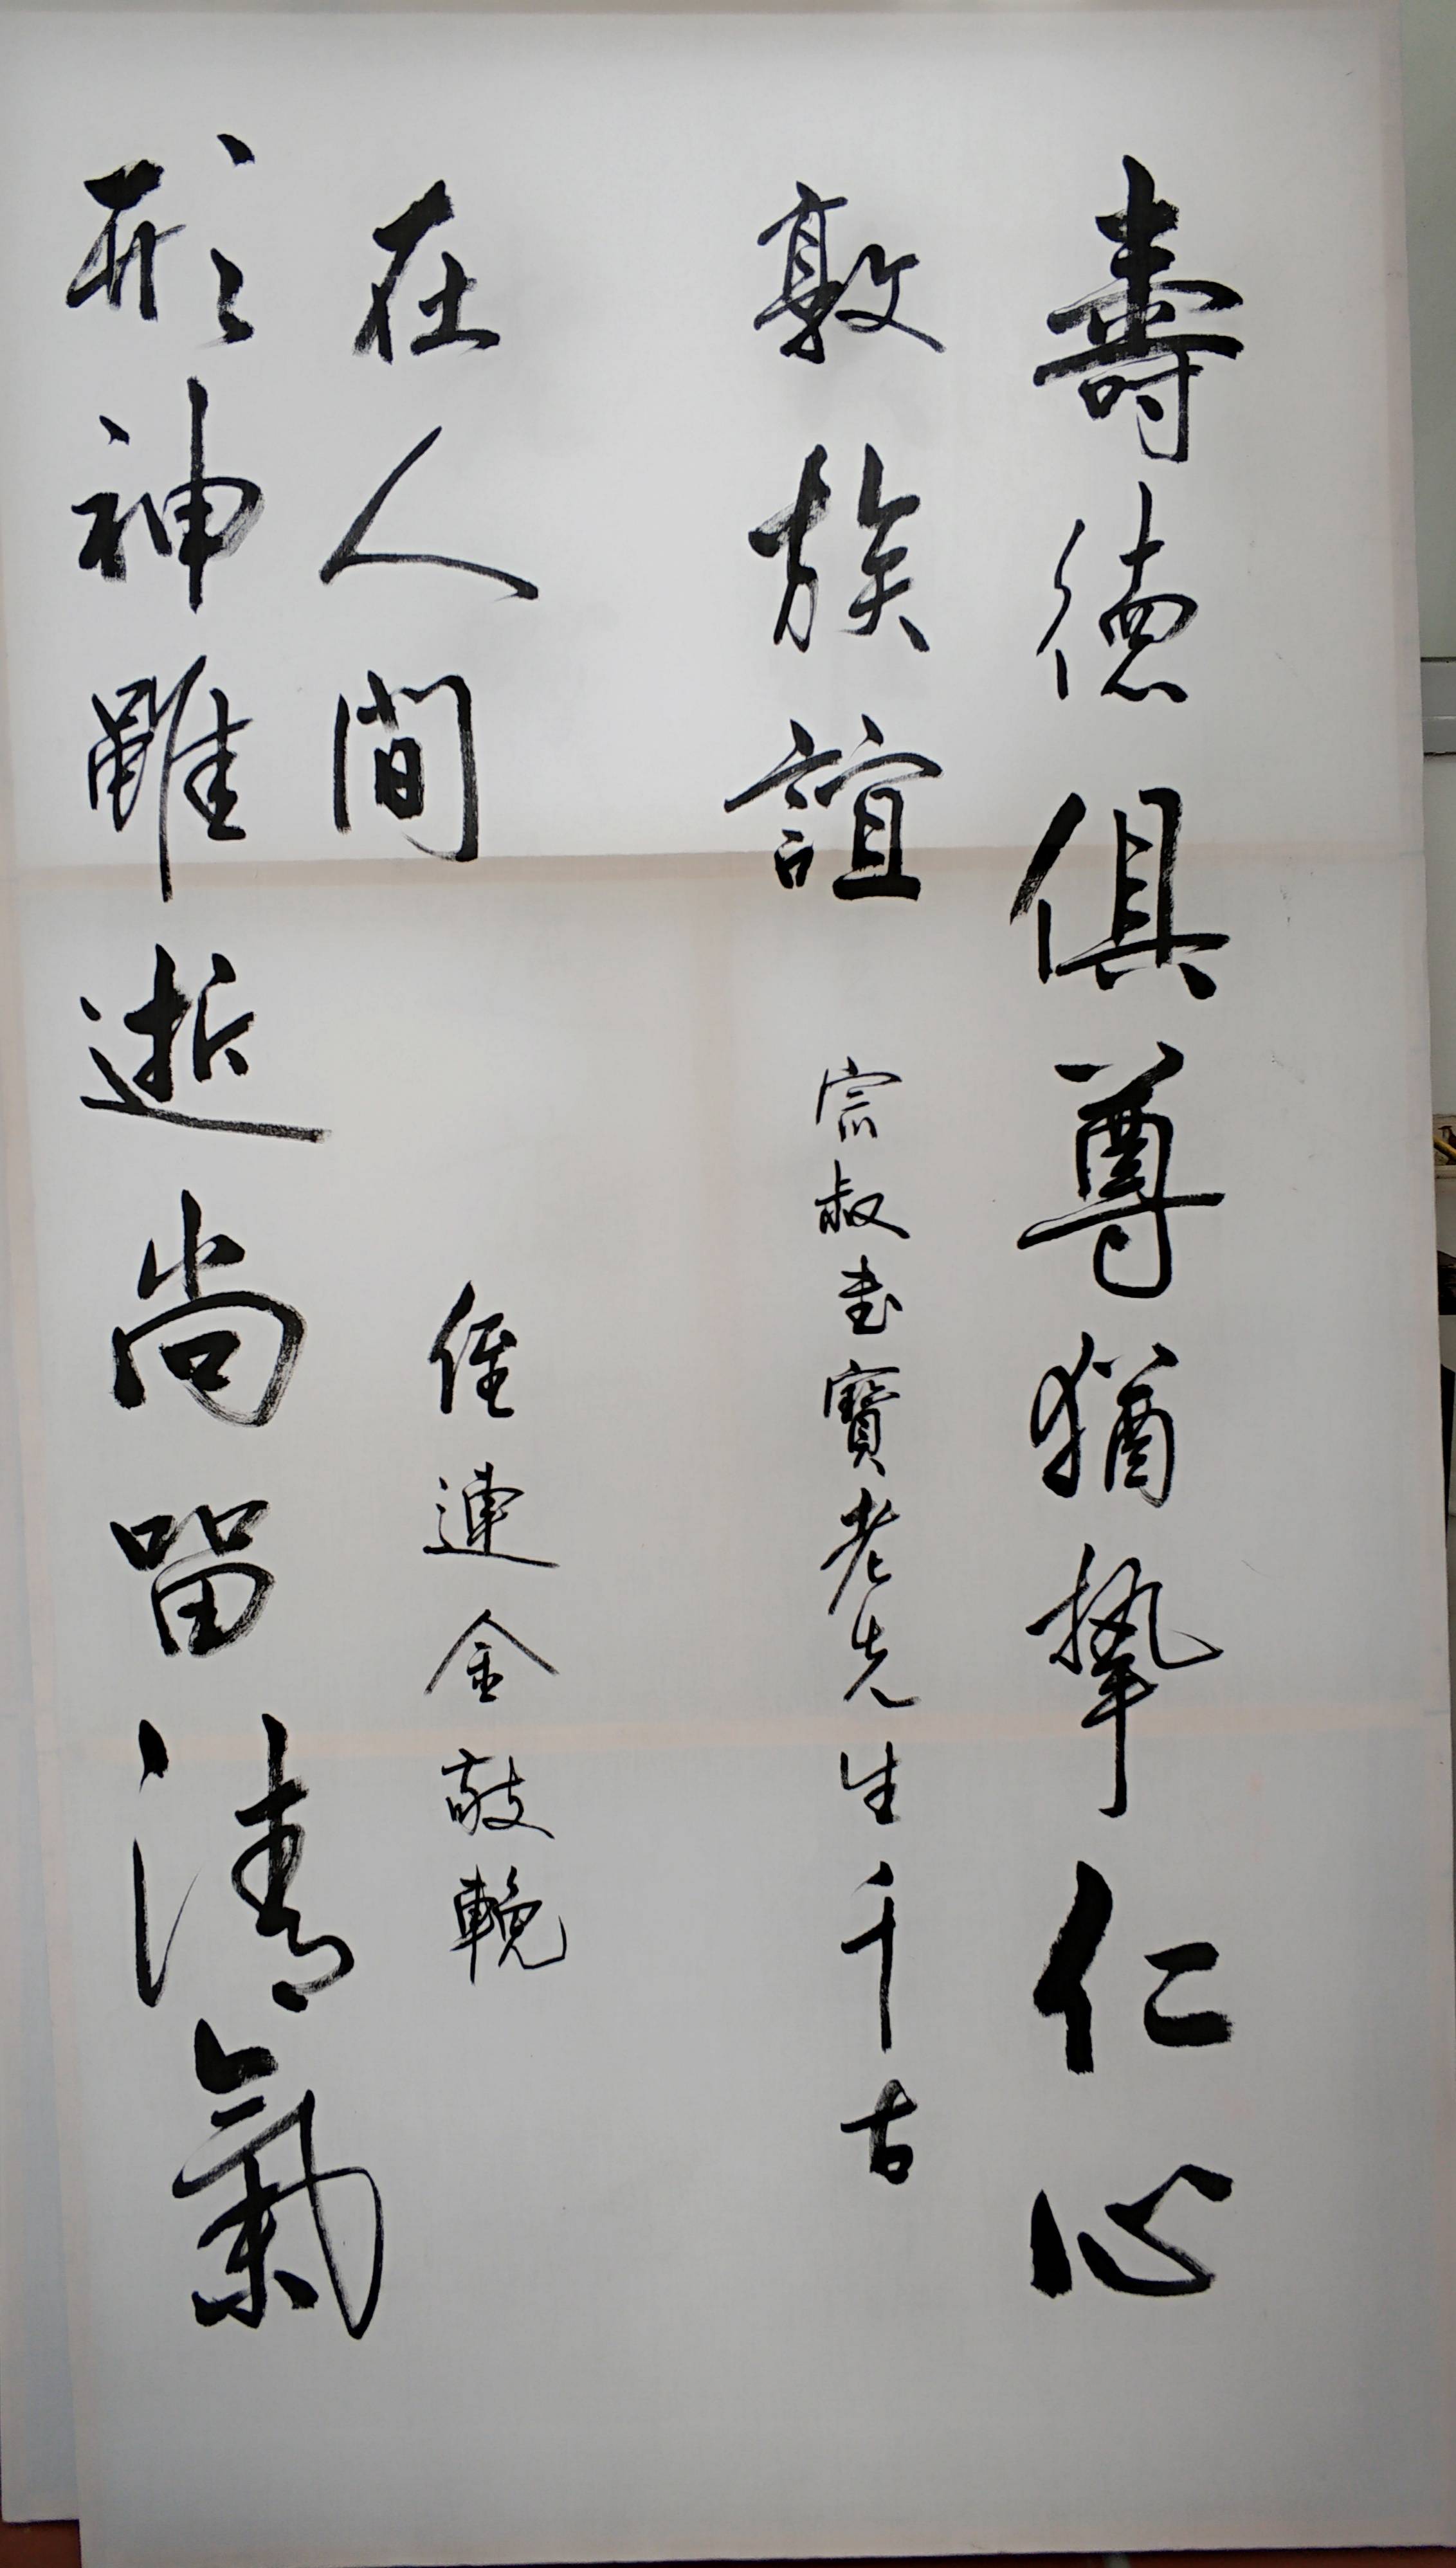 壽德俱尊猶摯仁心
敦族誼
宗叔書寶老先生千古
形神雖逝尚留清氣
在人間
侄連金敬輓